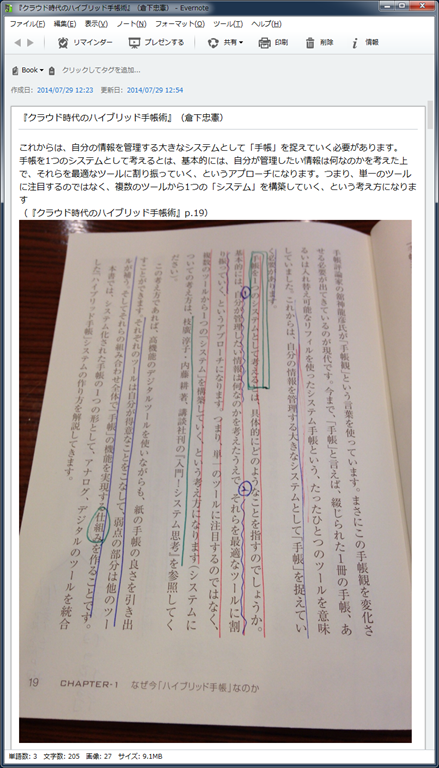 『クラウド時代のハイブリッド手帳術』（倉下忠憲） - Evernote
ファイル(F) 編集(E) 表示(V) ノート(N) フォーマット(O) ツール(T) ヘルプ(H)
リマインダー プレゼンする 共有 印刷 削除 情報
Book クリックしてタグを追加...
作成日: 2014/07/29 12:23 更新日: 2014/07/29 12:54
『クラウド時代のハイブリッド手帳術』（倉下忠憲）
これからは、自分の情報を管理する大きなシステムとして「手帳」を捉えていく必要があります。
手帳を1つのシステムとして考えるとは、基本的には、自分が管理したい情報は何なのかを考えた上
で、それらを最適なツールに割り振っていく、というアプローチになります。つまり、単一のツール
に注目するのではなく、複数のツールから1つの「システム」を構築していく、という考え方になりま
す
（『クラウド時代のハイブリッド手帳術』p.19）
手帳評論家の舘神龍彦氏が「手帳観」という言葉を使っています。まさにこの手帳観を変化さ
せる必要が出てきているのが現代です。今まで、「手帳」と言えば、綴じられた1冊の手帳、あ
るいは入れ替え可能なリフィルを使ったシステム手帳という、たったひとつのツールを意味
していました。これからは、自分の情報を管理する大きなシステムとして「手帳」を捉えてい
く必要があります。
手帳を1つのシステムとして考えるとは、具体的にどのようなことを指すのでしょうか。
基本的には、自分が管理したい情報は何なのかを考えたうえで、それらを最適なツールに割
り振っていく、というアプローチになります。つまり、単一のツールに注目するのではなく、
複数のツールから1つの「システム」を構築していく、という考え方になります（システムに
ついての考え方は、枝廣淳子・内藤耕著、講談社刊の『入門！システム思考』を参照してく
ださい）。
この考え方であれば、高機能のデジタルツールを使いながらも、紙の手帳の良さを引き出
すことができます。それぞれのツールは自分が得意なことをこなして、弱点の部分は他のツー
ルが補う。そしてそれらの組み合わせ全体で「手帳」の機能を実現する仕組みを作ることです。
本書では、システム化された手帳の1つの形として、アナログ、デジタルのツールを統合
した「ハイブリッド手帳」システムの作り方を解説してきます。
①
②
19 CHAPTER-1 なぜ今「ハイブリッド手帳」なのか
単語数: 3 文字数: 205 画像: 27 サイズ: 9.1MB